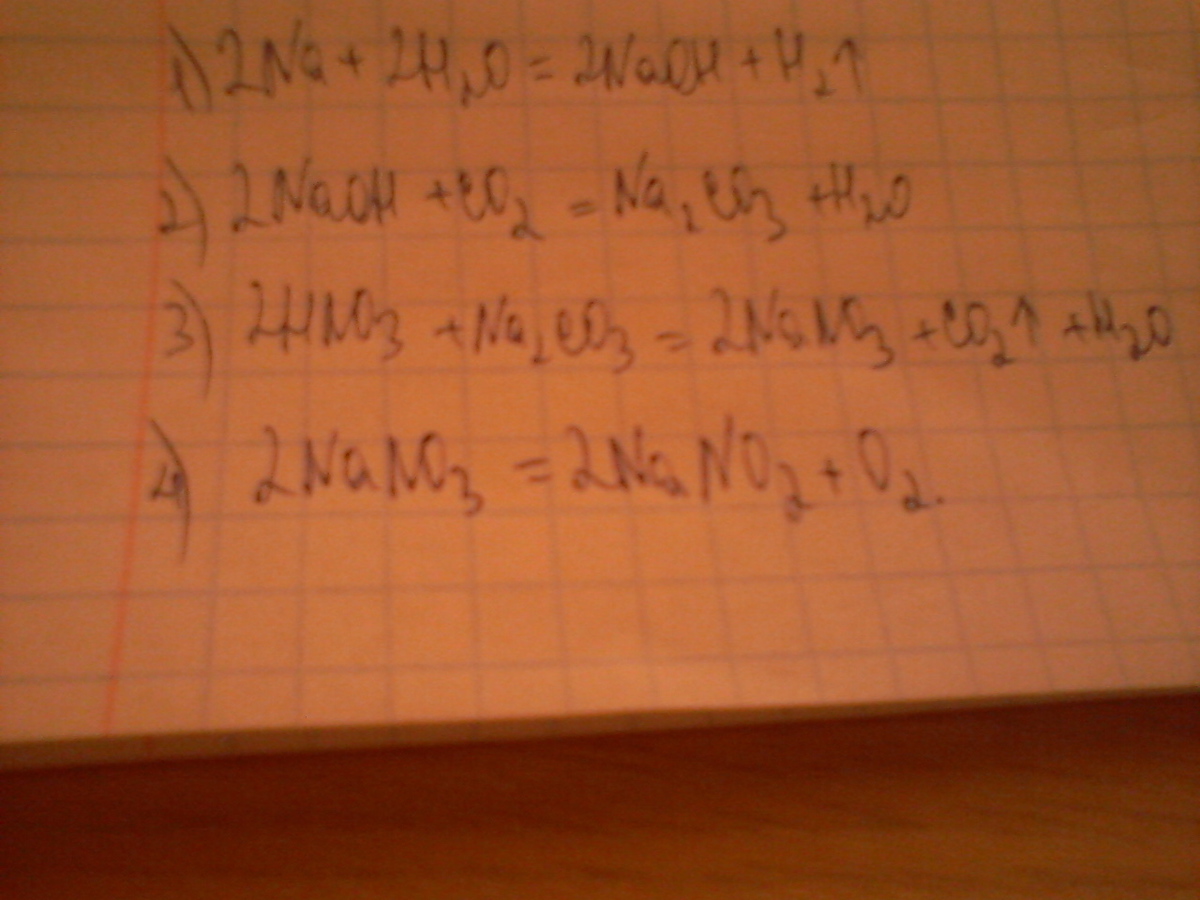 1) 2Na + 2H₂O = 2NaOH + H₂↑
2) 2NaOH + CO₂ = Na₂CO₃ + H₂O
3) 2HNO₃ + Na₂CO₃ = 2NaNO₃ + CO₂↑ + H₂O
4) 2NaNO₃ = 2NaNO₂ + O₂.